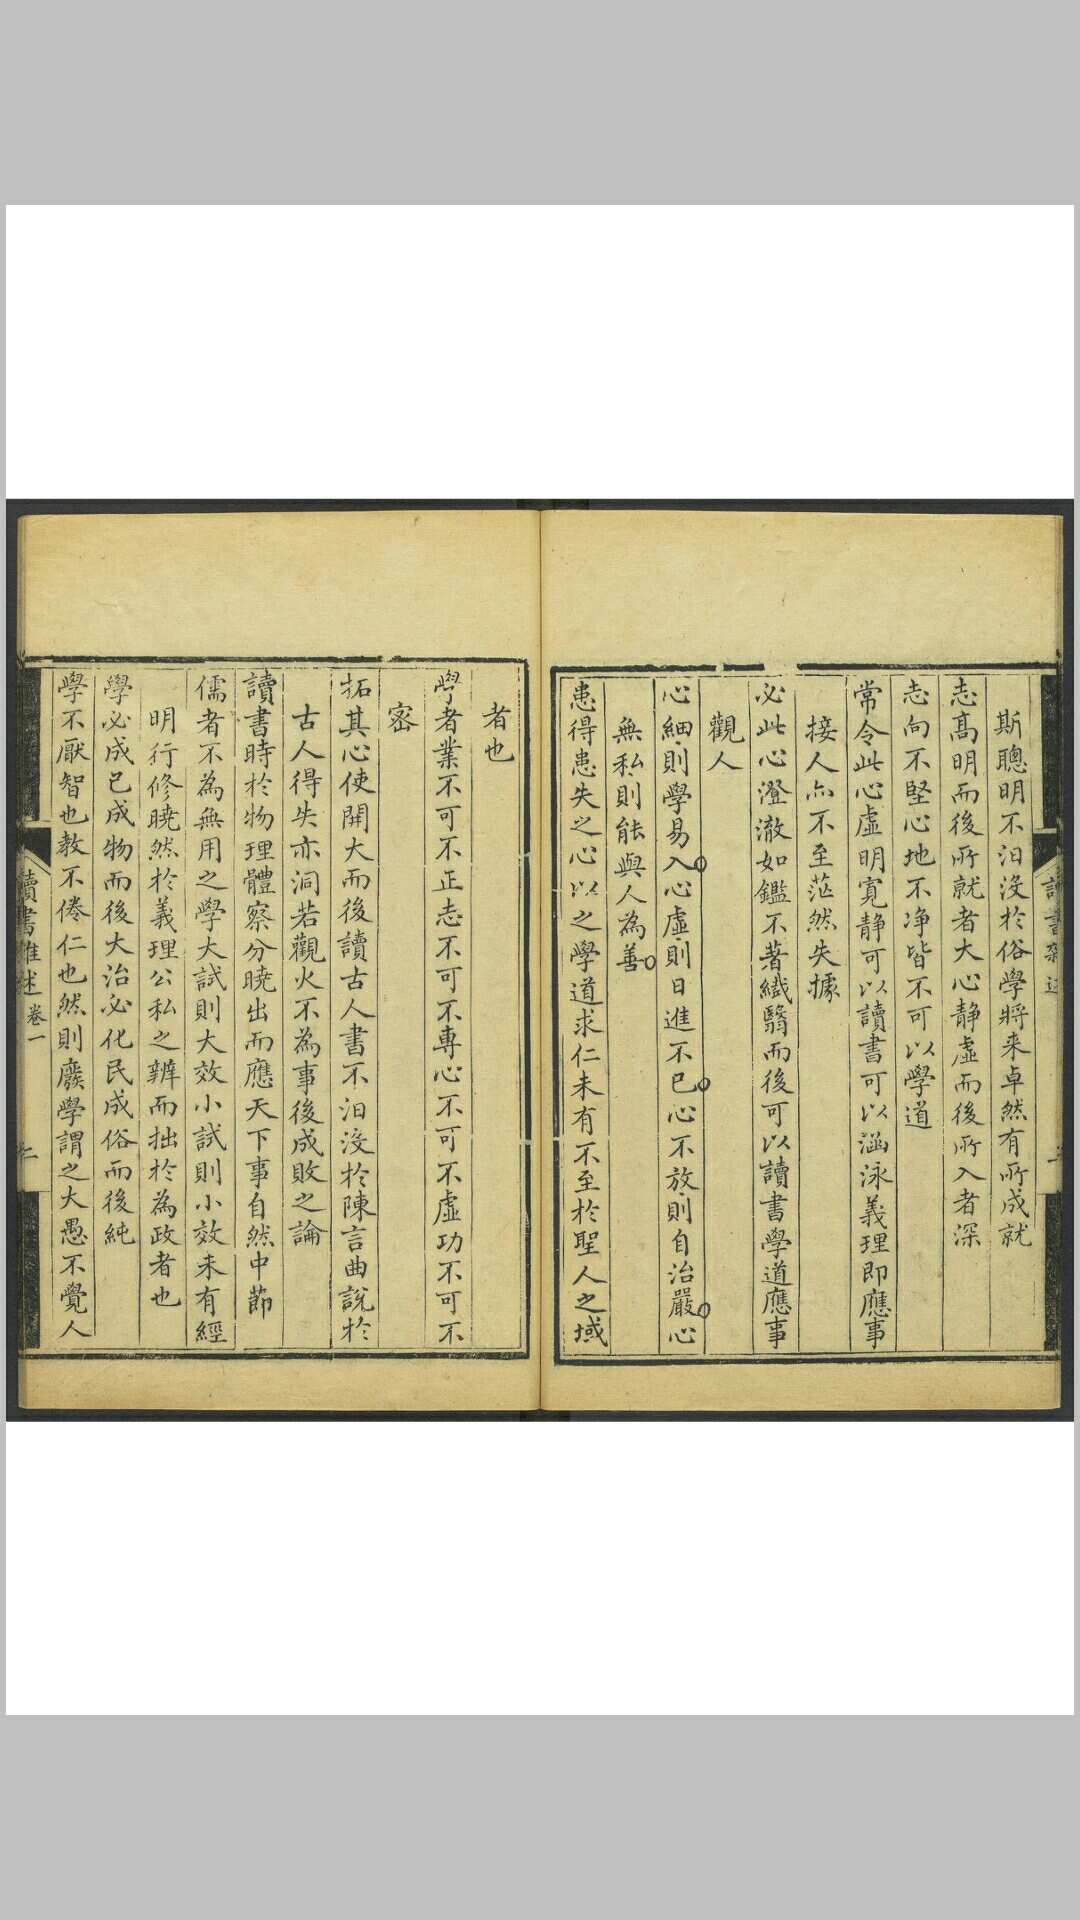 斯聰明不汨沒於俗學將来卓然有所成就
志髙明而後所就者大心靜虛而後所入者深
志向不堅心地不净皆不可以學道
常令此心虛明寛靜可以讀書可以涵泳義理即應事
接人亦不至茫然失據
必此心澄澈如鑑不著纎翳而後可以讀書學道應事
觀人
心細則學易入心虛則日進不已心不放則自治嚴心
無私則能與人為善
患得患失之心以之學道求仁未有不至於聖人之域
者也
學者業不可不正志不可不專心不可不虛功不可不
宻
拓其心使開大而後讀古人書不汨沒於陳言曲說於
古人得失亦洞若觀火不為事後成敗之論
讀書時於物理體察分曉出而應天下事自然中節
儒者不為無用之學大試則大效小試則小效未有經
明行修曉然於義理公私之辨而拙於為政者也
學必成已成物而後大治必化民成俗而後純
學不厭智也教不倦仁也然則廢學謂之大愚不覺人
讀書雜述
卷一
二